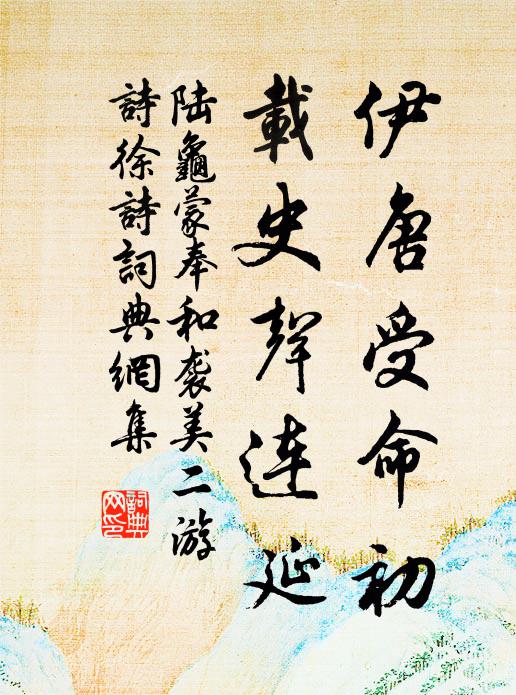 伊唐受命初
載史聲連延
陆龜蒙奉和袭美二游
詩徐詩詞典網集
詞典
网印